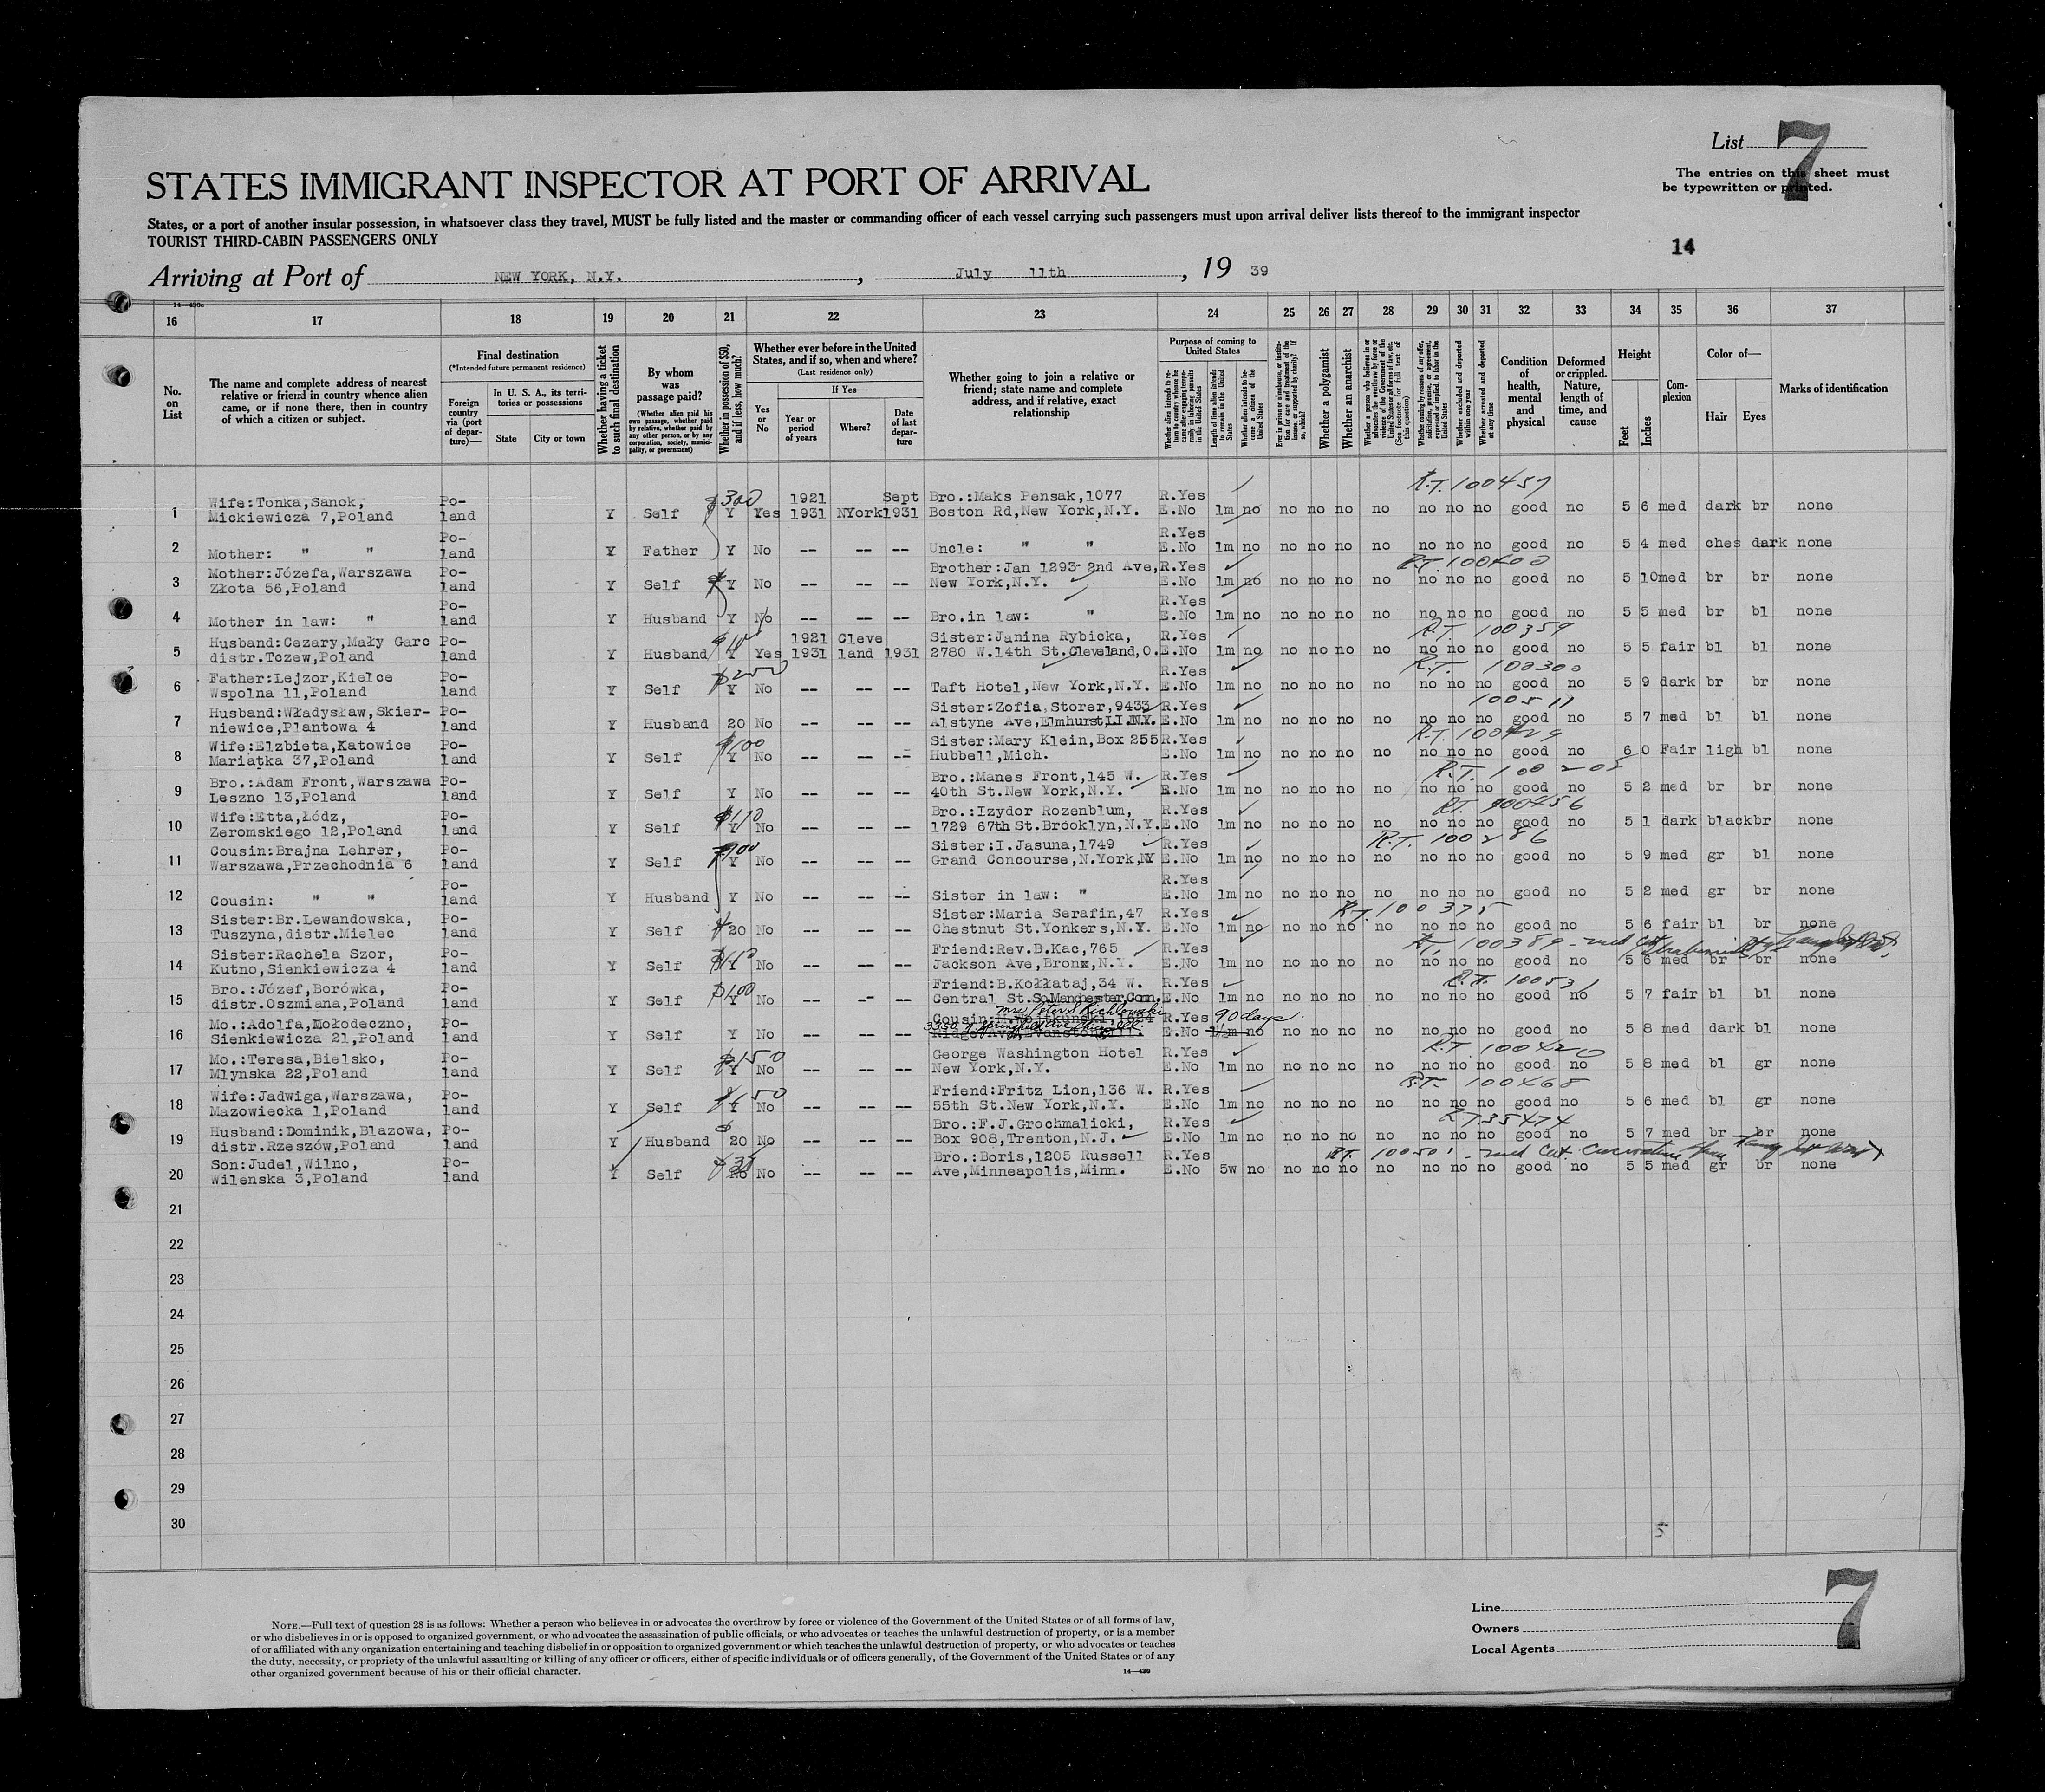 List 7
The entries on this sheet must
be typewritten or printed.
STATES IMMIGRANT INSPECTOR AT PORT OF ARRIVAL
States, or a port of another insular possession, in whatsoever class they travel, MUST be fully listed and the master or commanding officer of each vessel carrying such passengers must upon arrival deliver lists thereof to the immigrant inspector
TOURIST THIRD-CABIN PASSENGERS ONLY
14
Arriving at Port of NEW YORK, N.Y., July 11th, 19 39
16 17 18 19 20 21 22 23 24 25 26 27 28 29 30 31 32 33 34 35 36 37
No. on List
The name and complete address of nearest relative or friend in country whence alien came, or if none there, then in country of which a citizen or subject.
Final destination
(*Intended future permanent residence)
Foreign country via (port of departure)—
In U. S. A., its territories or possessions
State
City or town
Whether having a ticket to such final destination
By whom was passage paid?
(Whether alien paid his own passage, whether paid by relative, whether paid by any other person, or by any corporation, society, municipality, or government)
Whether in possession of $50, and if less, how much?
Whether ever before in the United States, and if so, when and where?
(Last residence only)
If Yes—
Yes or No
Year or period of years
Where?
Date of last departure
Whether going to join a relative or friend; state name and complete address, and if relative, exact relationship
Purpose of coming to United States
Length of time alien intends to remain in the United States
Whether alien intends to become a citizen of the United States
Whether a polygamist
Whether an anarchist
Whether excluded and deported within one year
Whether arrested and deported at any time
Condition of health, mental and physical
Deformed or crippled. Nature, length of time, and cause
Height
Feet
Inches
Complexion
Color of—
Hair
Eyes
Marks of identification
R.T. 100457
Wife:Tonka,Sanok, Po- $300 1921 Sept Bro.:Maks Pensak,1077 R.Yes
1 Mickiewicza 7,Poland land Y Self Y Yes 1931 NYork 1931 Boston Rd,New York,N.Y. E.No 1m no no no no no no no no good no 5 6 med dark br none
Po- R.Yes
2 Mother: " " land Y Father Y No -- -- -- Uncle: " " E.No 1m no no no no no no no no good no 5 4 med ches dark none
Mother:Józefa,Warszawa Po- Brother:Jan 1293- 2nd Ave, R.Yes R.T. 100400
3 Złota 56,Poland land Y Self Y No -- -- -- New York,N.Y. E.No 1m no no no no no no no no good no 5 10 med br br none
Po- R.Yes
4 Mother in law: " land Y Husband Y No -- -- -- Bro.in law: " E.No 1m no no no no no no no no good no 5 5 med br bl none
Husband:Cezary,Mały Garc Po- 1921 Cleve Sister:Janina Rybicka, R.Yes R.T. 100359
5 distr.Tczew,Poland land Y Husband Y Yes 1931 land 1931 2780 W.14th St.Cleveland,O. E.No 1m no no no no no no no no good no 5 5 fair bl bl none
Father:Lejzor,Kielce Po- $250 R.Yes R.T. 100300
6 Wspolna 11,Poland land Y Self Y No -- -- -- Taft Hotel,New York,N.Y. E.No 1m no no no no no no no no good no 5 9 dark br br none
Husband:Władysław,Skier- Po- Sister:Zofia Storer,9433 R.Yes 100511
7 niewice,Plantowa 4 land Y Husband 20 No -- -- -- Alstyne Ave,Elmhurst,LI.NY. E.No 1m no no no no no no no no good no 5 7 med bl bl none
Wife:Elzbieta,Katowice Po- Sister:Mary Klein,Box 255 R.Yes R.T. 100429
8 Mariatka 37,Poland land Y Self Y No -- -- -- Hubbell,Mich. E.No 1m no no no no no no no no good no 6 0 Fair ligh bl none
Bro.:Adam Front,Warszawa Po- Bro.:Manes Front,145 W. R.Yes R.T. 100205
9 Leszno 13,Poland land Y Self Y No -- -- -- 40th St.New York,N.Y. E.No 1m no no no no no no no no good no 5 2 med br br none
Wife:Etta,Łódz, Po- $110 Bro.:Izydor Rozenblum, R.Yes R.T. 100456
10 Zeromskiego 12,Poland land Y Self Y No -- -- -- 1729 67th St.Brooklyn,N.Y. E.No 1m no no no no no no no no good no 5 1 dark black br none
Cousin:Brajna Lehrer, Po- Sister:I.Jasuna,1749 R.Yes R.T. 100286
11 Warszawa,Przechodnia 6 land Y Self Y No -- -- -- Grand Concourse,N.York,NY E.No 1m no no no no no no no no good no 5 9 med gr bl none
Po- R.Yes
12 Cousin: " " land Y Husband Y No -- -- -- Sister in law: " E.No 1m no no no no no no no no good no 5 2 med gr br none
Sister:Br.Lewandowska, Po- Sister:Maria Serafin,47 R.Yes R.T. 100375
13 Tuszyna,distr.Mielec land Y Self 20 No -- -- -- Chestnut St.Yonkers,N.Y. E.No 1m no no no no no no no no good no 5 6 fair bl br none
Sister:Rachela Szor, Po- Friend:Rev.B.Kac,765 R.Yes 100389 - med Cert
14 Kutno,Sienkiewicza 4 land Y Self Y No -- -- -- Jackson Ave,Bronx,N.Y. E.No 1m no no no no no no no no good no 5 6 med br br none
Bro.:Józef,Borówka, Po- $100 Friend:B.Kołłataj,34 W. R.Yes R.T. 100531
15 distr.Oszmiana,Poland land Y Self Y No -- -- -- Central St.So.Manchester,Conn. E.No 1m no no no no no no no no good no 5 7 fair bl bl none
Mo.:Adolfa,Mołodeczno, Po- Cousin: Mrs Peter R.Yes 90 days
16 Sienkiewicza 21,Poland land Y Self Y No -- -- -- Ridge Ave,Evanston,Ill. E.No no no no no no no no no good no 5 8 med dark bl none
Mo.:Teresa,Bielsko, Po- $150 George Washington Hotel R.Yes R.T. 100420
17 Mlynska 22,Poland land Y Self Y No -- -- -- New York,N.Y. E.No 1m no no no no no no no no good no 5 8 med bl gr none
Wife:Jadwiga,Warszawa, Po- Friend:Fritz Lion,136 W. R.Yes R.T. 100468
18 Mazowiecka 1,Poland land Y Self Y No -- -- -- 55th St.New York,N.Y. E.No 1m no no no no no no no no good no 5 6 med bl gr none
Husband:Dominik,Blazowa, Po- Bro.:F.J.Grochmalicki, R.Yes 35474
19 distr.Rzeszów,Poland land Y Husband 20 No -- -- -- Box 908,Trenton,N.J. E.No 1m no no no no no no no no good no 5 7 med br br none
Son:Judel,Wilno, Po- Bro.:Boris,1205 Russell R.Yes R.T. 100501 - med Cert.
20 Wilenska 3,Poland land Y Self No -- -- -- Ave,Minneapolis,Minn. E.No 5w no no no no no no no no good no 5 5 med gr br none
21
22
23
24
25
26
27
28
29
30
5
NOTE.—Full text of question 28 is as follows: Whether a person who believes in or advocates the overthrow by force or violence of the Government of the United States or of all forms of law,
or who disbelieves in or is opposed to organized government, or who advocates the assassination of public officials, or who advocates or teaches the unlawful destruction of property, or is a member
of or affiliated with any organization entertaining and teaching disbelief in or opposition to organized government or which teaches the unlawful destruction of property, or who advocates or teaches
the duty, necessity, or propriety of the unlawful assaulting or killing of any officer or officers, either of specific individuals or of officers generally, of the Government of the United States or of any
other organized government because of his or their official character.
14—430
Line
Owners
Local Agents
7